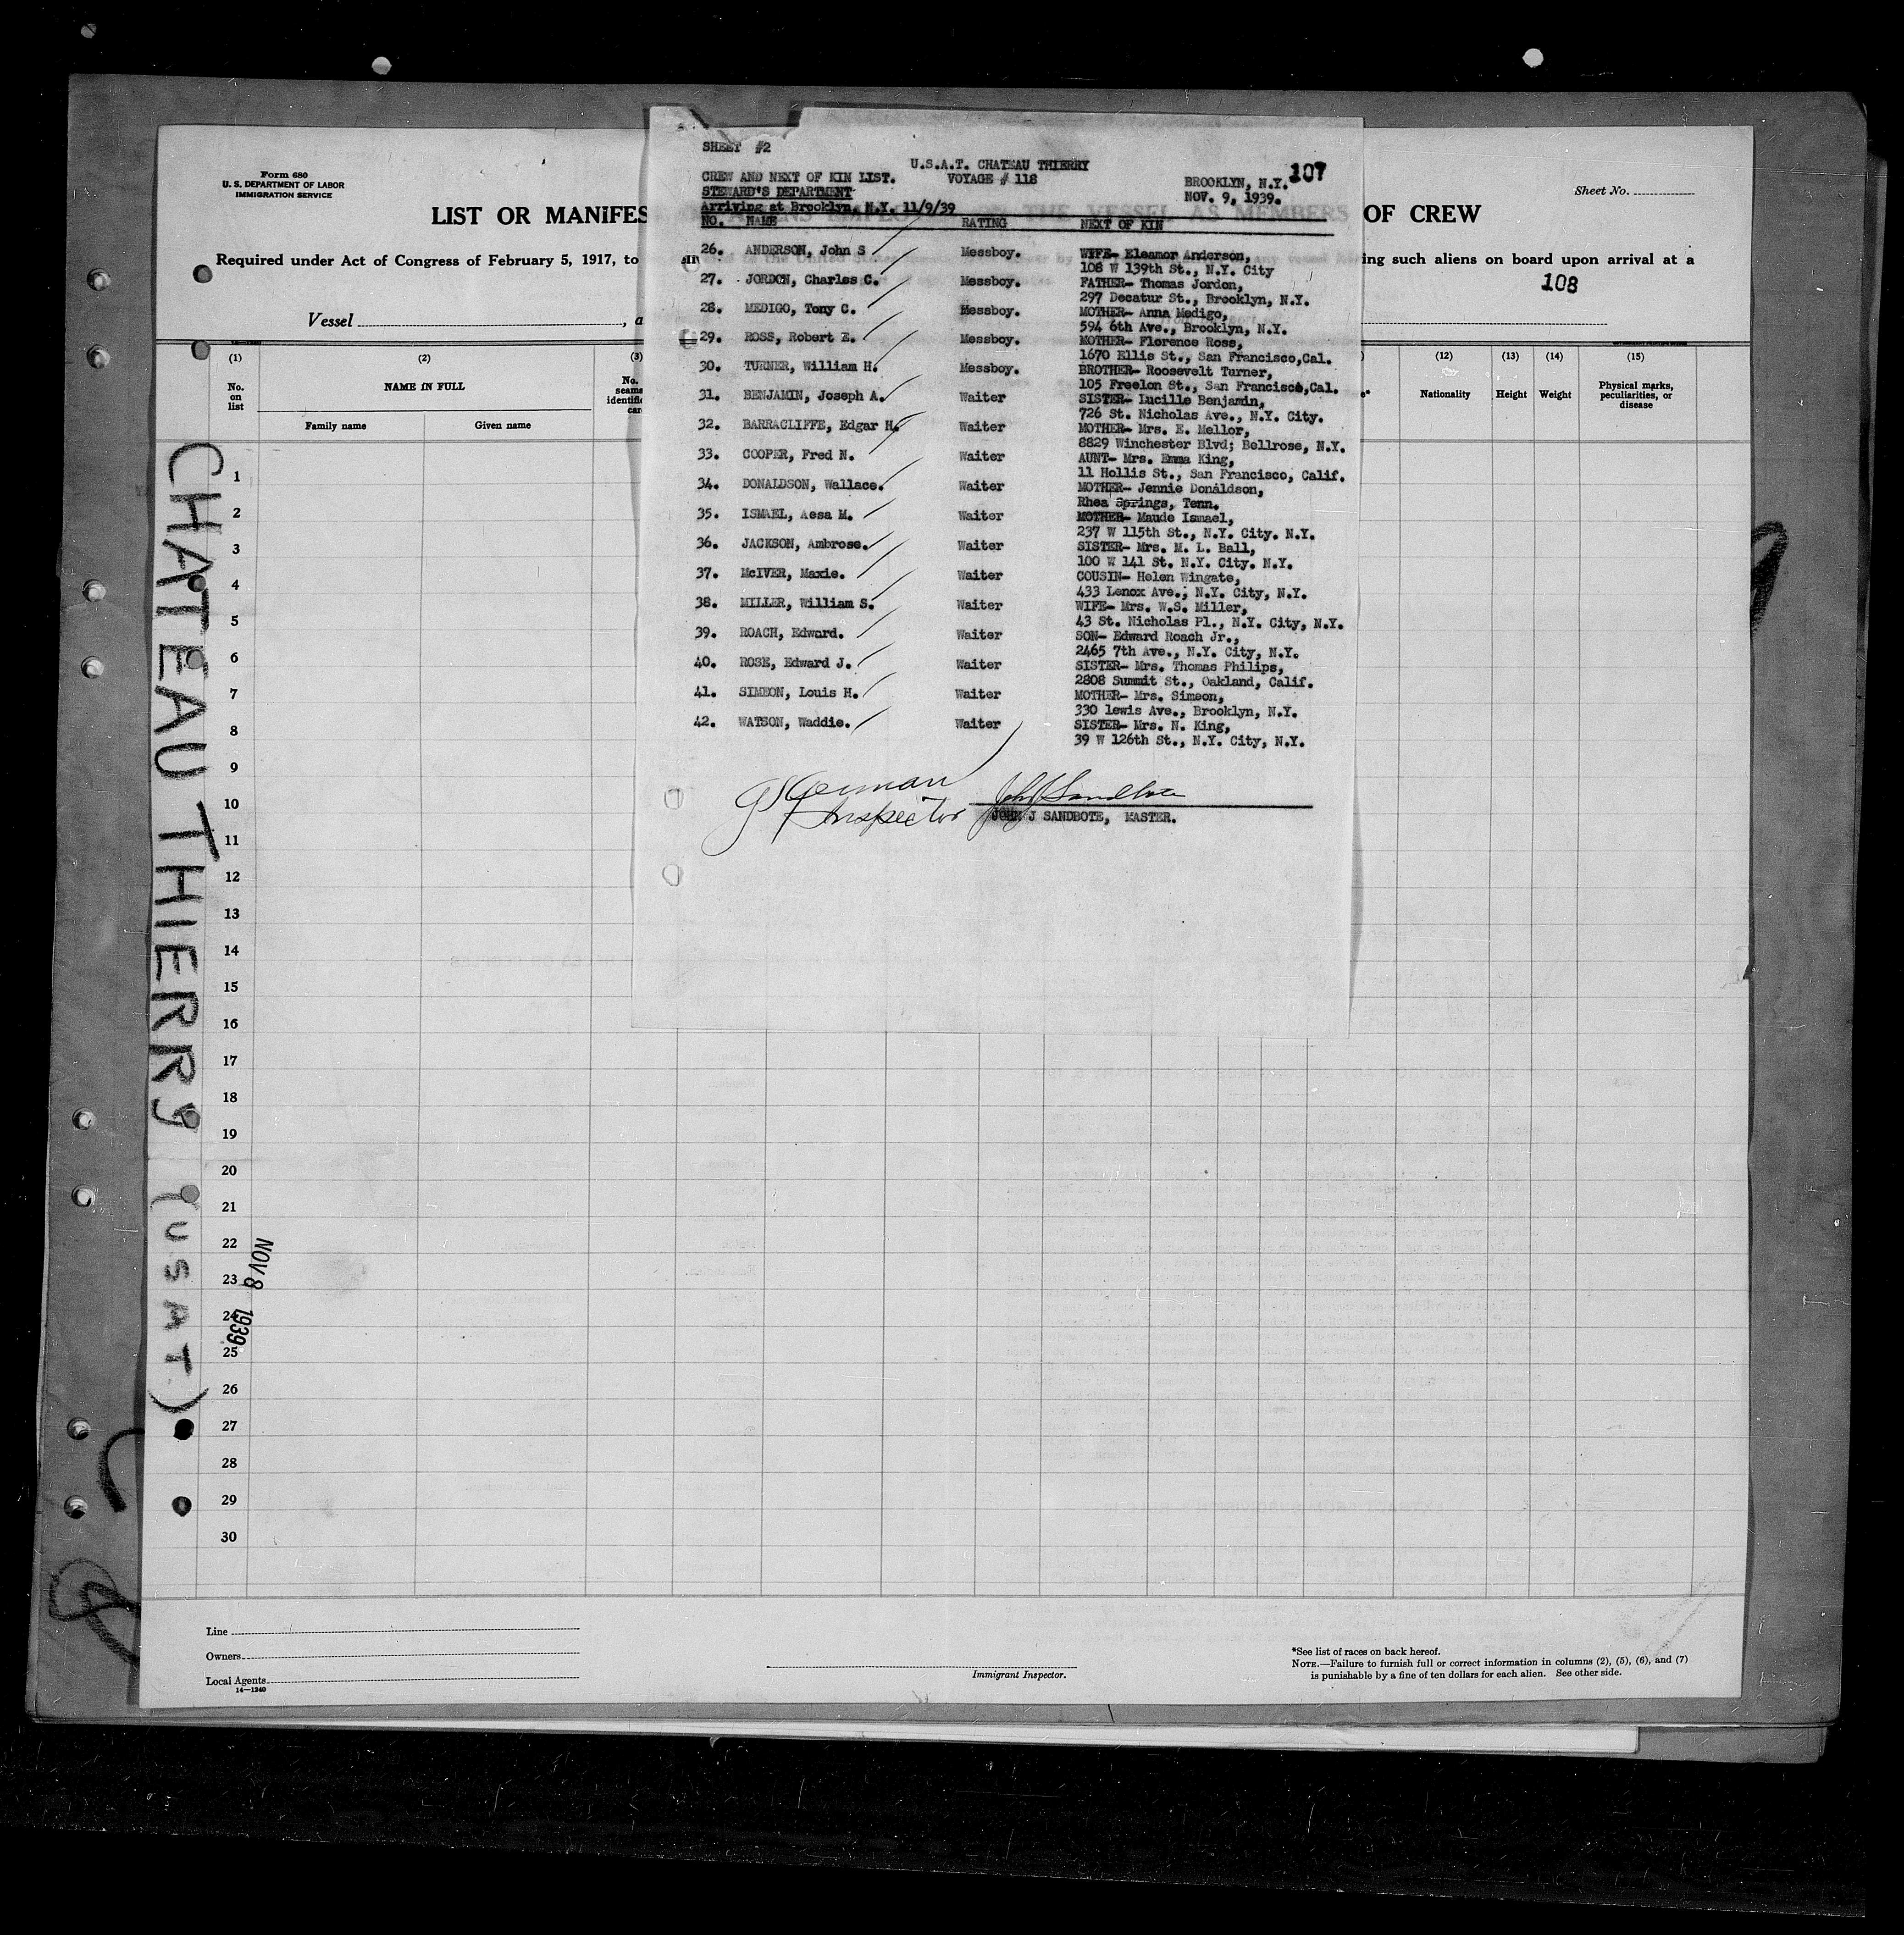 Form 680
U. S. DEPARTMENT OF LABOR
IMMIGRATION SERVICE
LIST OR MANIFES
OF CREW
Sheet No.
Required under Act of Congress of February 5, 1917, to
ing such aliens on board upon arrival at a
108
Vessel , a
SHEET #2
U.S.A.T. CHATEAU THIERRY
107
CREW AND NEXT OF KIN LIST. VOYAGE # 118 BROOKLYN, N.Y.
STEWARD'S DEPARTMENT NOV. 9, 1939.
Arriving at Brooklyn, N.Y. 11/9/39
NO. NAME RATING NEXT OF KIN
26. ANDERSON, John S Messboy. WIFE- Eleanor Anderson,
108 W 139th St., N.Y. City
27. JORDON, Charles C. Messboy. FATHER- Thomas Jordon,
297 Decatur St., Brooklyn, N.Y.
28. MEDIGO, Tony C. Messboy. MOTHER- Anna Medigo,
594 6th Ave., Brooklyn, N.Y.
29. ROSS, Robert E. Messboy. MOTHER- Florence Ross,
1670 Ellis St., San Francisco,Cal.
30. TURNER, William H. Messboy. BROTHER- Roosevelt Turner,
105 Freelon St., San Francisco,Cal.
31. BENJAMIN, Joseph A. Waiter SISTER- Lucille Benjamin,
726 St. Nicholas Ave., N.Y. City.
32. BARRACLIFFE, Edgar H. Waiter MOTHER- Mrs. E. Mellor,
8829 Winchester Blvd; Bellrose, N.Y.
33. COOPER, Fred N. Waiter AUNT- Mrs. Emma King,
11 Hollis St., San Francisco, Calif.
34. DONALDSON, Wallace. Waiter MOTHER- Jennie Donaldson,
Rhea Springs, Tenn.
35. ISMAEL, Aesa M. Waiter MOTHER- Maude Ismael,
237 W 115th St., N.Y. City. N.Y.
36. JACKSON, Ambrose. Waiter SISTER- Mrs. M. L. Ball,
100 W 141 St. N.Y. City. N.Y.
37. McIVER, Maxie. Waiter COUSIN- Helen Wingate,
433 Lenox Ave.; N.Y. City, N.Y.
38. MILLER, William S. Waiter WIFE- Mrs. W.S. Miller,
43 St. Nicholas Pl., N.Y. City, N.Y.
39. ROACH, Edward. Waiter SON- Edward Roach Jr.,
2465 7th Ave., N.Y. City, N.Y.
40. ROSE, Edward J. Waiter SISTER- Mrs. Thomas Philips,
2808 Summit St., Oakland, Calif.
41. SIMEON, Louis H. Waiter MOTHER- Mrs. Simeon,
330 lewis Ave., Brooklyn, N.Y.
42. WATSON, Waddie. Waiter SISTER- Mrs. N. King,
39 W 126th St., N.Y. City, N.Y.
Inspector John J Sandbote
JOHN J SANDBOTE, MASTER.
(1) (2) (3) (12) (13) (14) (15)
No. on list
NAME IN FULL
Family name Given name
Nationality Height Weight Physical marks, peculiarities, or disease
1
2
3
4
5
6
7
8
9
10
11
12
13
14
15
16
17
18
19
20
21
22
23
24
25
26
27
28
29
30
CHATEAU THIERRY (USAT)
NOV 8 1939
Line
Owners
Local Agents
14—1240
Immigrant Inspector.
*See list of races on back hereof.
NOTE.—Failure to furnish full or correct information in columns (2), (5), (6), and (7)
is punishable by a fine of ten dollars for each alien. See other side.